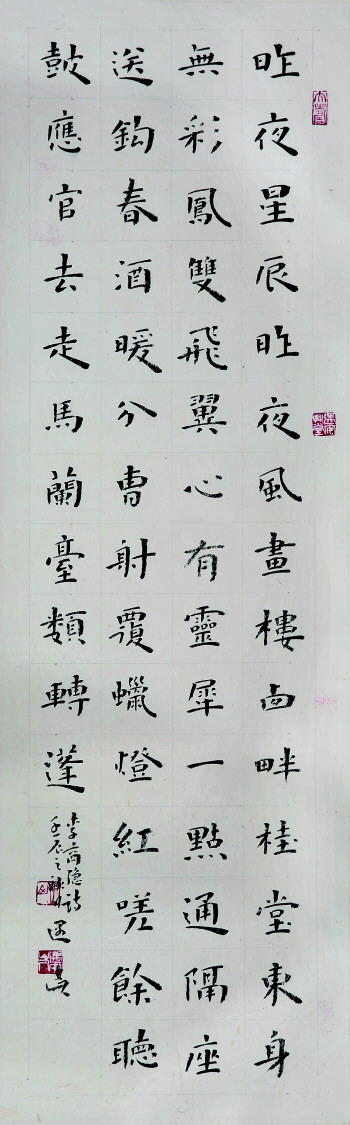 昨夜星辰昨夜風畫樓西畔桂堂東身
無彩鳳雙飛翼心有靈犀一點通隔座
送鉤春酒暖分曹射覆蠟燈紅嗟餘聽
鼓應官去走馬蘭臺類轉蓬
李商隐詩
壬辰之秋